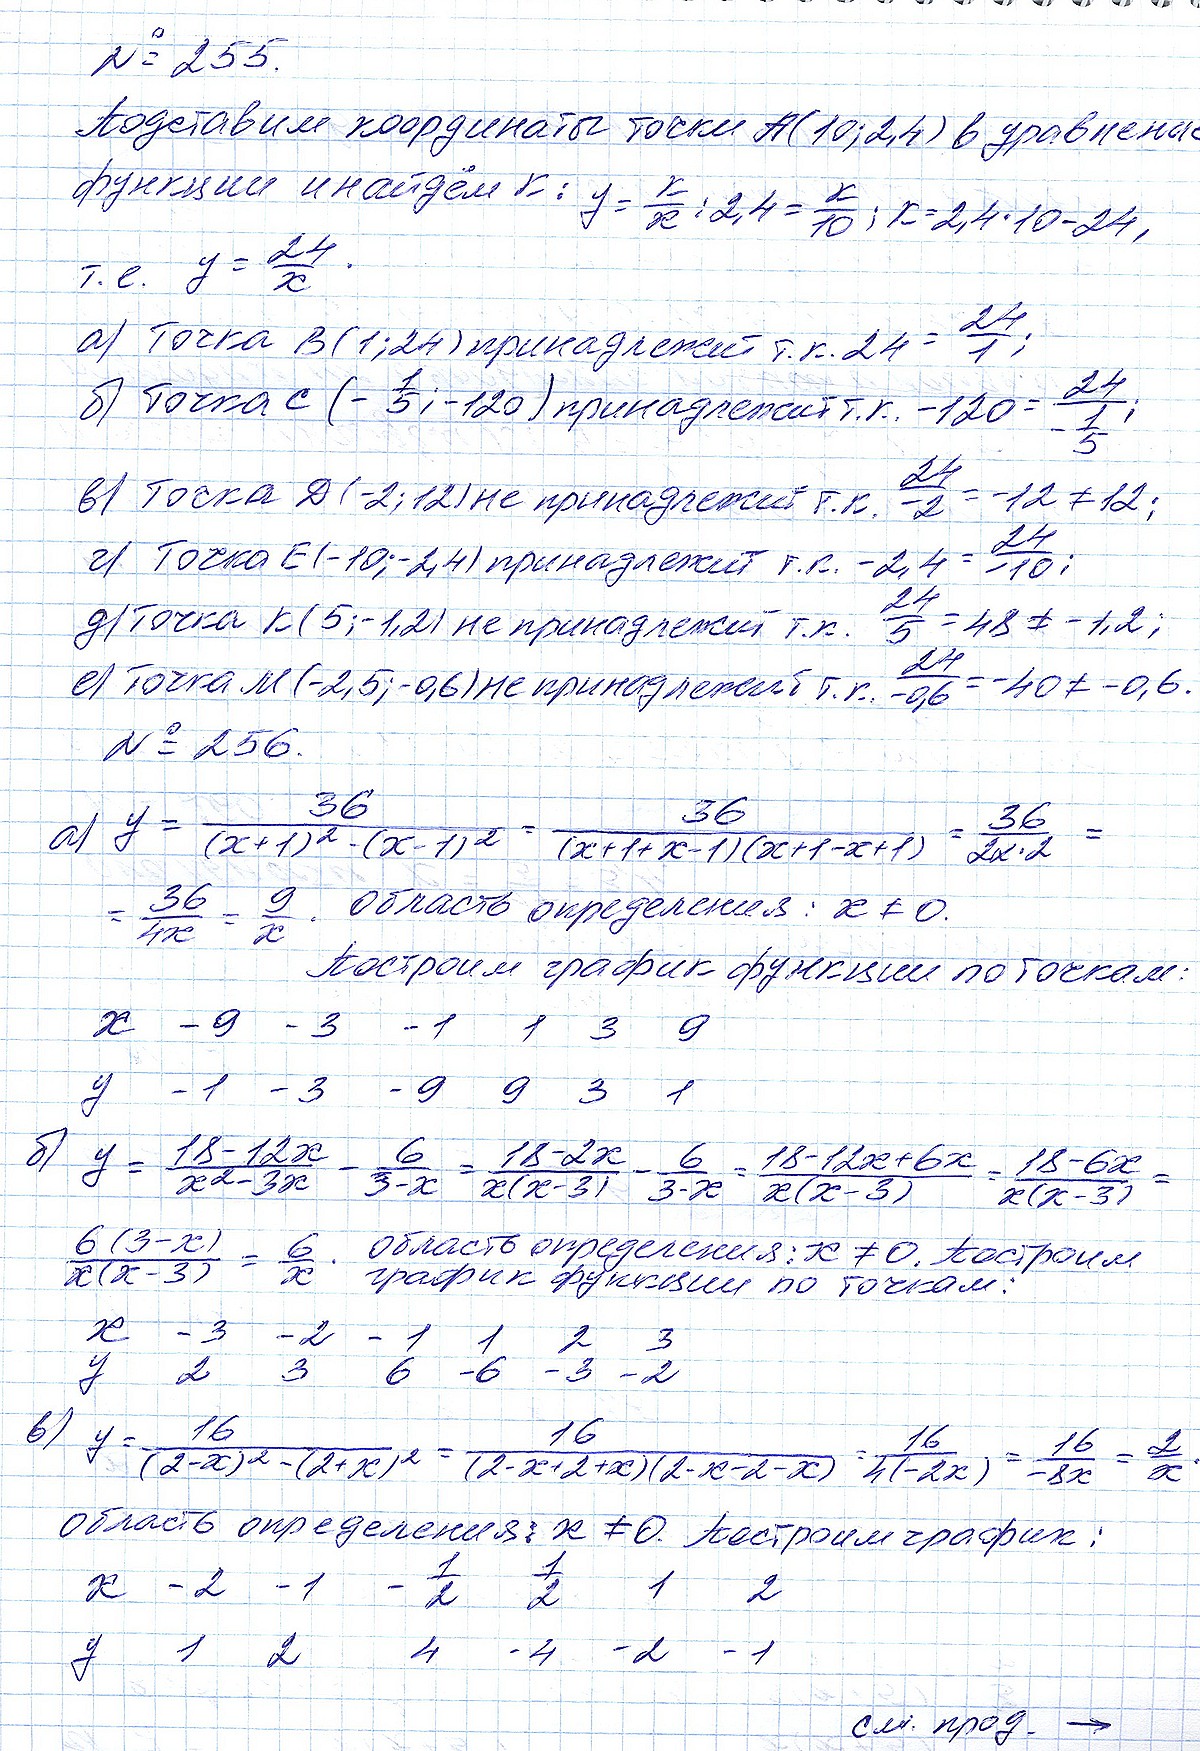 № 255.
Подставим координаты точки A(10;2,4) в уравнение
функции и найдём к: y = к/x; 2,4 = к/10; к = 2,4·10 - 24,
т.е. y = 24/x.
а) Точка B(1;24) принадлежит т.к. 24 = 24/1;
б) Точка C (-1/5; -120) принадлежит т.к. -120 = 24/(-1/5);
в) Точка D(-2;12) не принадлежит т.к. 24/-2 = -12 ≠ 12;
г) Точка E(-10;-2,4) принадлежит т.к. -2,4 = 24/-10;
д) Точка K(5;-1,2) не принадлежит т.к. 24/5 = 48 ≠ -1,2;
е) Точка M(-2,5;-0,6) не принадлежит т.к. 24/-0,6 = -40 ≠ -0,6.
№ 256.
а) y = 36/((x+1)²-(x-1)²) = 36/((x+1+x-1)(x+1-x+1)) = 36/(2x·2) =
= 36/4x = 9/x. область определения: x ≠ 0.
Построим график функции по точкам:
x -9 -3 -1 1 3 9
y -1 -3 -9 9 3 1
б) y = (18-12x)/(x²-3x) - 6/(3-x) = (18-2x)/(x(x-3)) - 6/(3-x) = (18-12x+6x)/(x(x-3)) = (18-6x)/(x(x-3)) =
6(3-x)/(x(x-3)) = 6/x. область определения: x ≠ 0. Построим
график функции по точкам:
x -3 -2 -1 1 2 3
y 2 3 6 -6 -3 -2
в) y = 16/((2-x)²-(2+x)²) = 16/((2-x+2+x)(2-x-2-x)) = 16/(4(-2x)) = 16/-8x = 2/x.
область определения: x ≠ 0. Построим график:
x -2 -1 -1/2 1/2 1 2
y 1 2 4 -4 -2 -1
см. прод. →